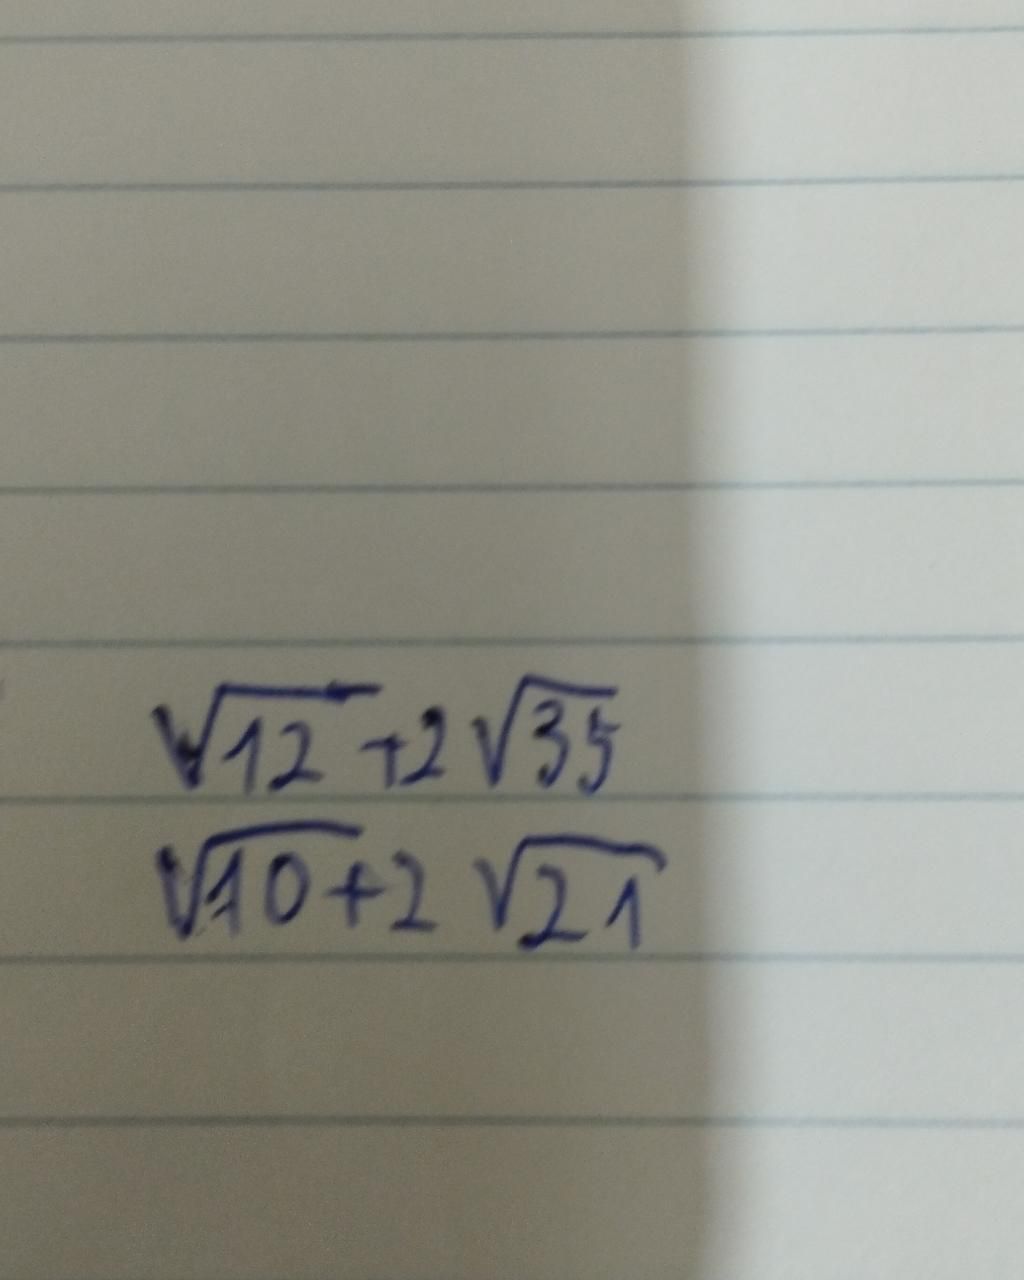 √12 +2 √35
√10+2 √21